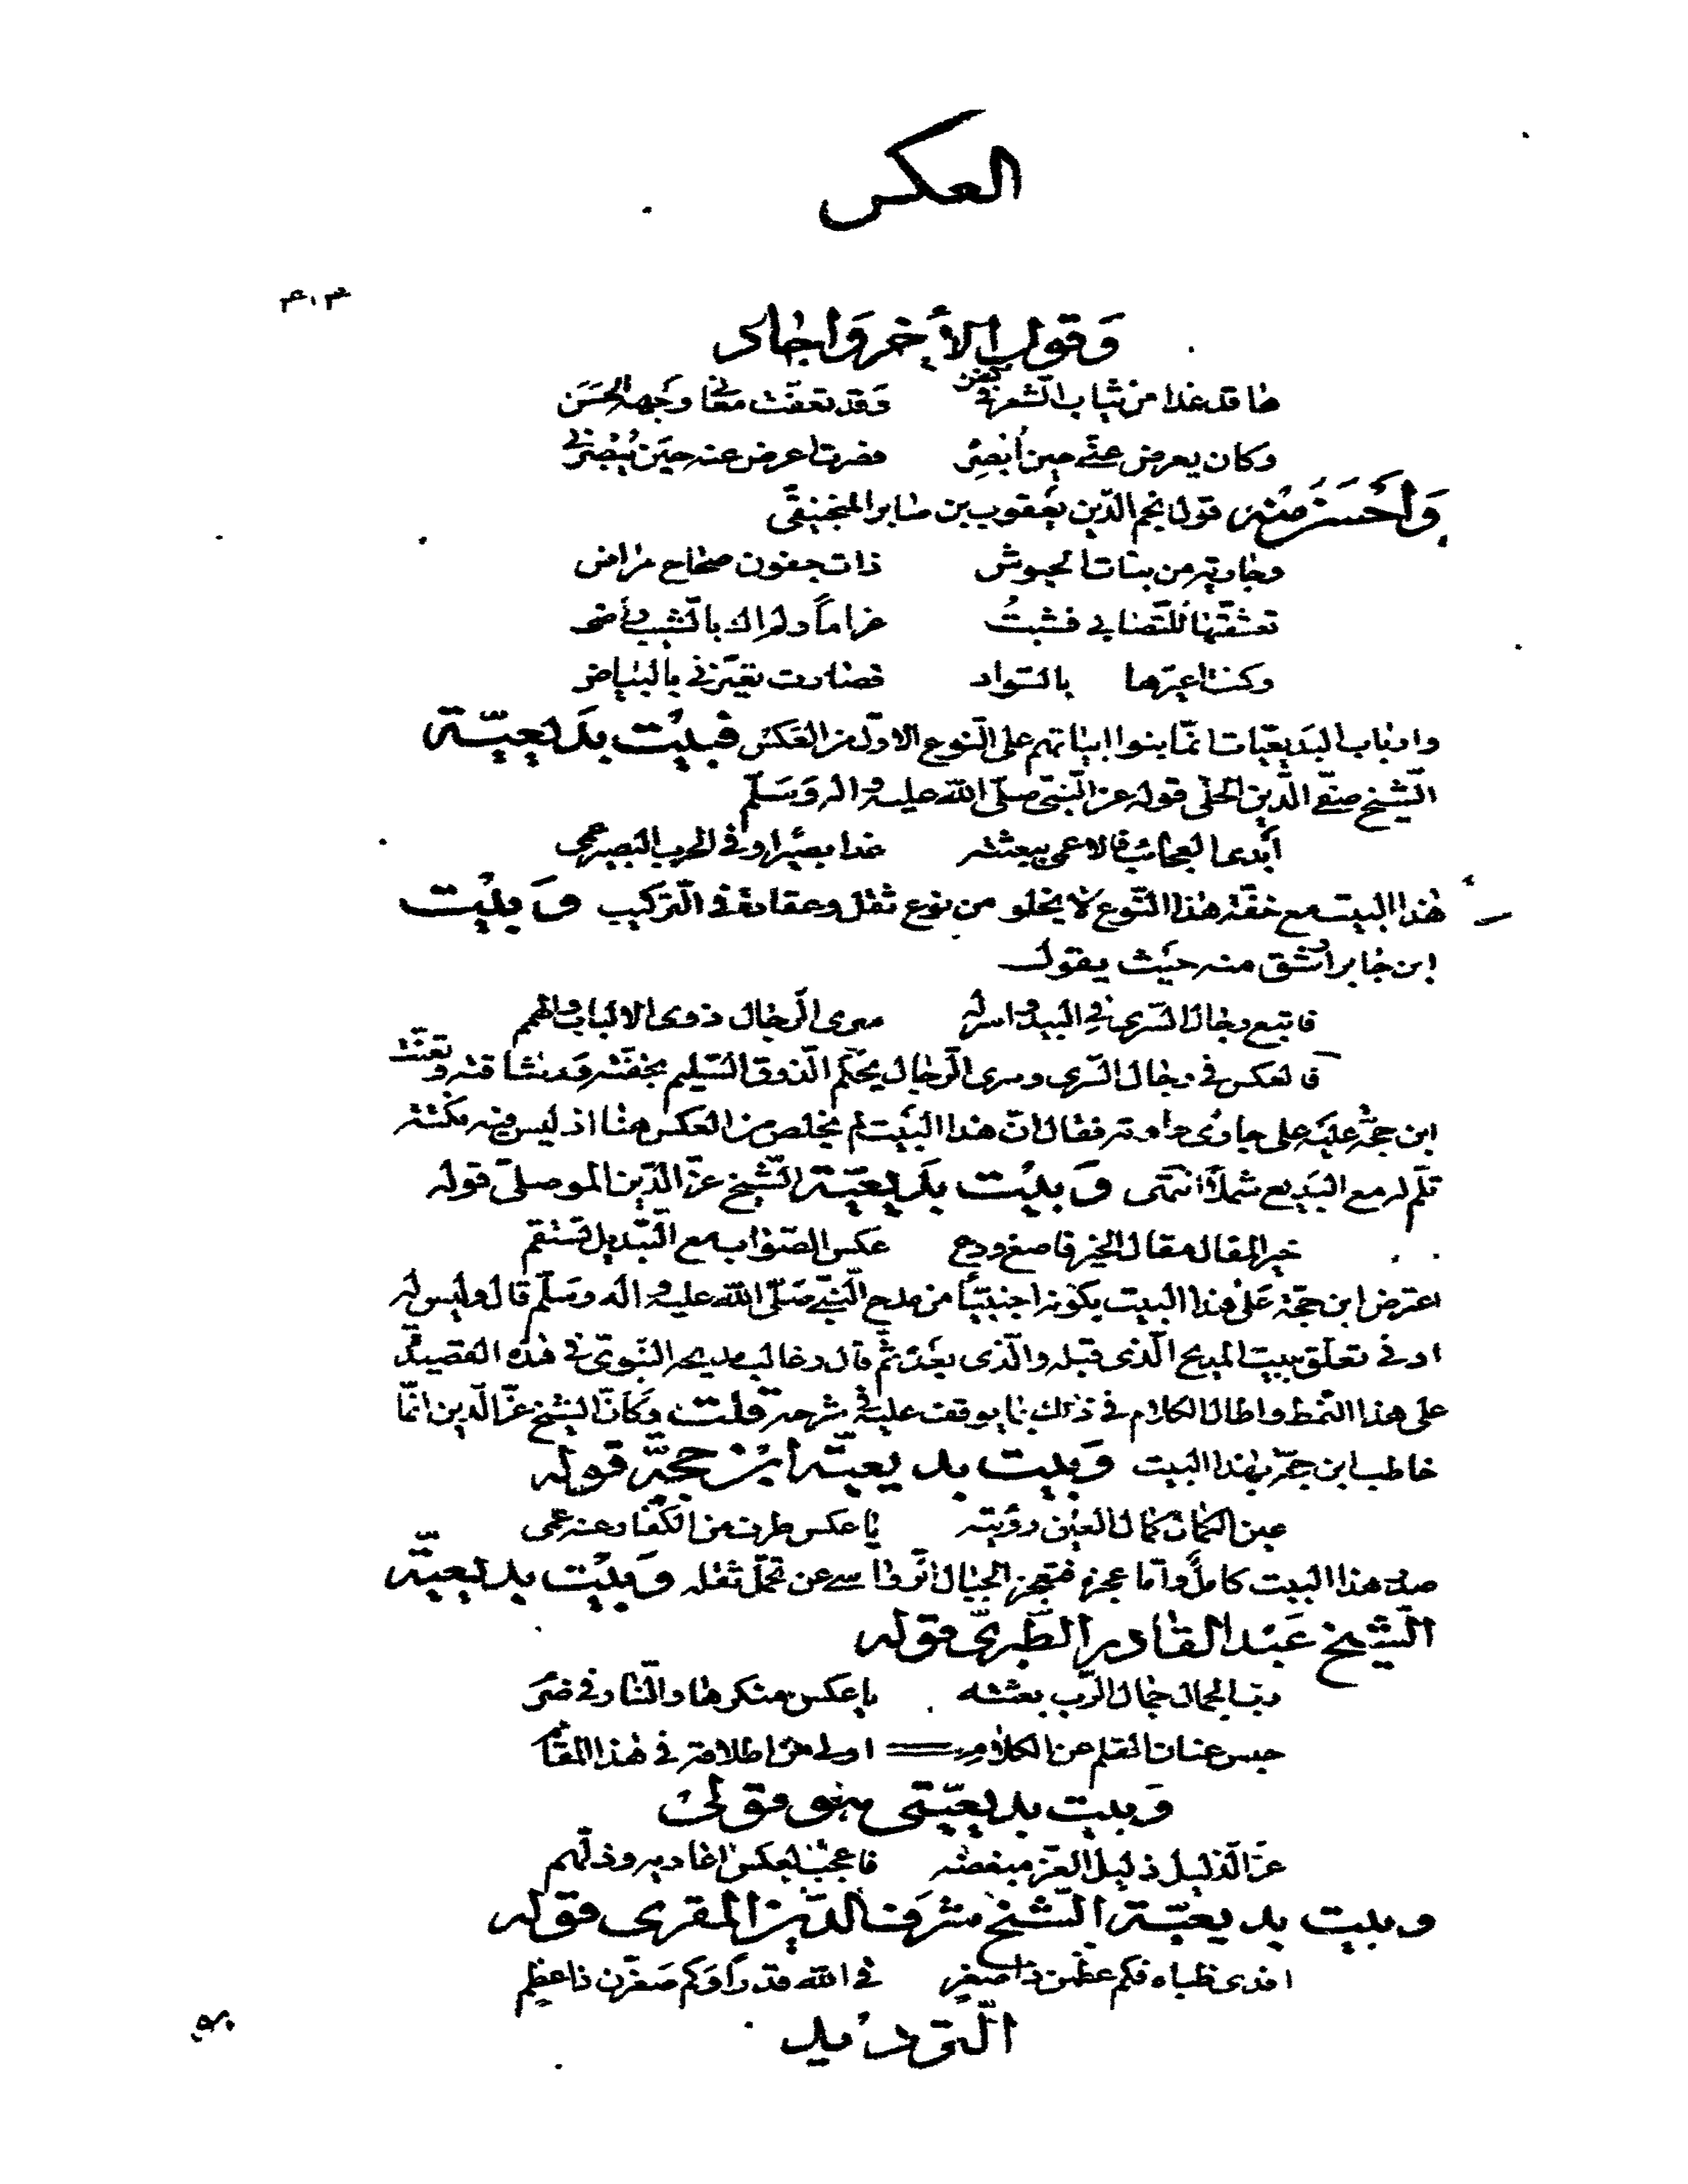 العكس
٣٠٣
وَقول الأخر وَاجاد
ها قد غدا من ثياب الشعر في كفن وَقد تعفّت معاني وجهه الحَسَن
وَكان يعرض عنّي حين أبصره فصرت اعرض عنه حين يُبْصرني
وَأَحْسَنُ مِنْه قول نجم الدّين يعقوب بن صابر المنجنيقي
وجارية من بنات الحبوش ذات جفون صحاح مراض
تعشّقتها للتّصابي فشبتُ غراماً ولم اك بالشّيب راض
وكنت اعيّرها بالسّواد فصارت تعيّرني بالبياض
وارباب البَديعيّات انّما بنوا ابياتهم على النّوع الاوّل من العَكس فبيْت بدَيعيّة
الشّيخ صفيّ الدّين الحلّي قوله عن النّبيّ صلّى الله عليه واله وَسَلّم
أبدى العجائب فالاعمى ببعثته غدا بصيرا وفي الحرب البصير عمي
هذا البيت مع خفّة هذا النّوع لا يخلو من نوع ثقل وعقادة في التّركيب وَ بيْت
ابن جابر ارشق منه حيث يقول
فاتبع رجال السّرى في البيد واسر له سرى الرّجال ذوى الالباب والهمم
فالعكس في رجال السّرى وسرى الرّجال يحكم الذّوق السّليم بخفّته ورشاقته وتعنّت
ابن حجّة عليه على جاري عادته فقال انّ هذا البَيت لم يخلص من العكس هنا اذ ليس فيه نكتة
تلم له مع البَديع شملًا انتهى وَ بيْت بَديعيّة الشّيخ عزّ الدّين الموصلي قوله
خير المقال مقال الخير فاصغ ودع عكس الصّواب مع التّبديل تستقم
اعترض ابن حجّة عَلى هذا البيت بكونه اجنبيّاً من مدح النّبيّ صَلّى الله عليه واله وسَلّم قال وليس له
ادنى تعلّق ببيت المديح الّذى قبله والّذى بعده ثمّ قال وغالب مديحه النّبوي في هذه القصيدة
على هذا النّمط واطال الكلام في ذلك بما يوقف عليه في شرحه قلت وَكانّ الشيخ عزّ الدين انّما
خاطب ابن حجّة بهذا البيت وَبيت بديعيّة ابن حجّة قوله
عين الكمال كمال العين رؤيته يا عكس طرف من الكفّار عنه عمي
صدر هذا البيت كاملٌ وامّا عجزه فتعجز الجبال الرّواسي عن تحمّل ثقله وَبيْت بديعيّة
الشّيخ عَبْد القادر الطّبري قوله
ربّ الجمال جمال الرّب بعثته يا عكس منكرها والنّار في ضرم
حبس عنان القلم عن الكلام اولى من اطلاقه في هذا المقام
وَ بيت بديعيّتي هو قولي
عزّ الذليل ذليل العزّ مبغضه فاعجب لعكس اعاديه وذلّهم
وبيت بديعيّة الشّيخ شرف الدّين المقرى قوله
افدى ظباه فكم عظّمن ذا صغر في الله قدراً وكم صغّرن ذا عظم
التّرديد